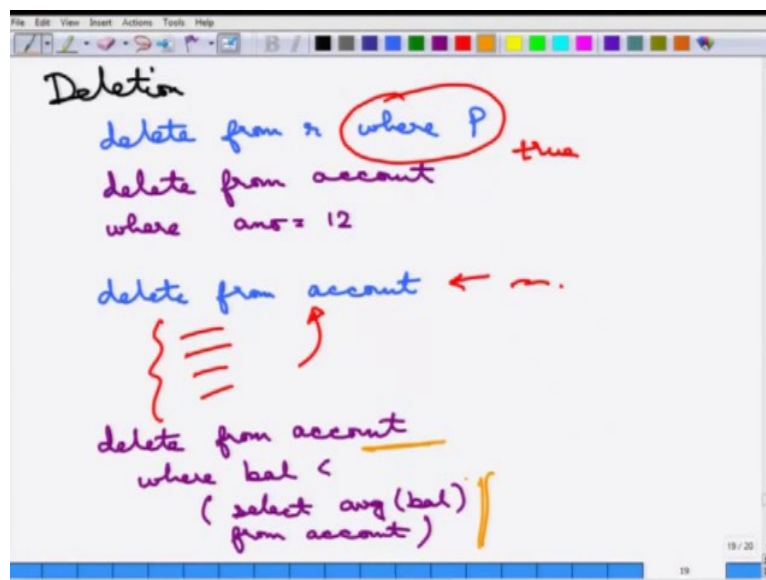 File Edit View Insert Actions Tools Help
Deletion
delete from r where P
true
delete from account
where ano = 12
delete from account
delete from account
where bal <
( select avg (bal)
from account )
19 / 20
19